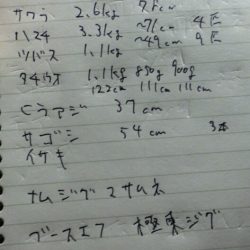 サワラ 2.6kg 78cm
ハマチ 3.3kg ~71cm 4匹
ツバス 1.1kg ~49cm 9匹
タチウオ 1.1kg 850g 900g
122cm 111cm 111cm
シマアジ 37cm
サゴシ 54cm 3本
イサキ
ナムジグ
ブースエフ 極楽ジグ